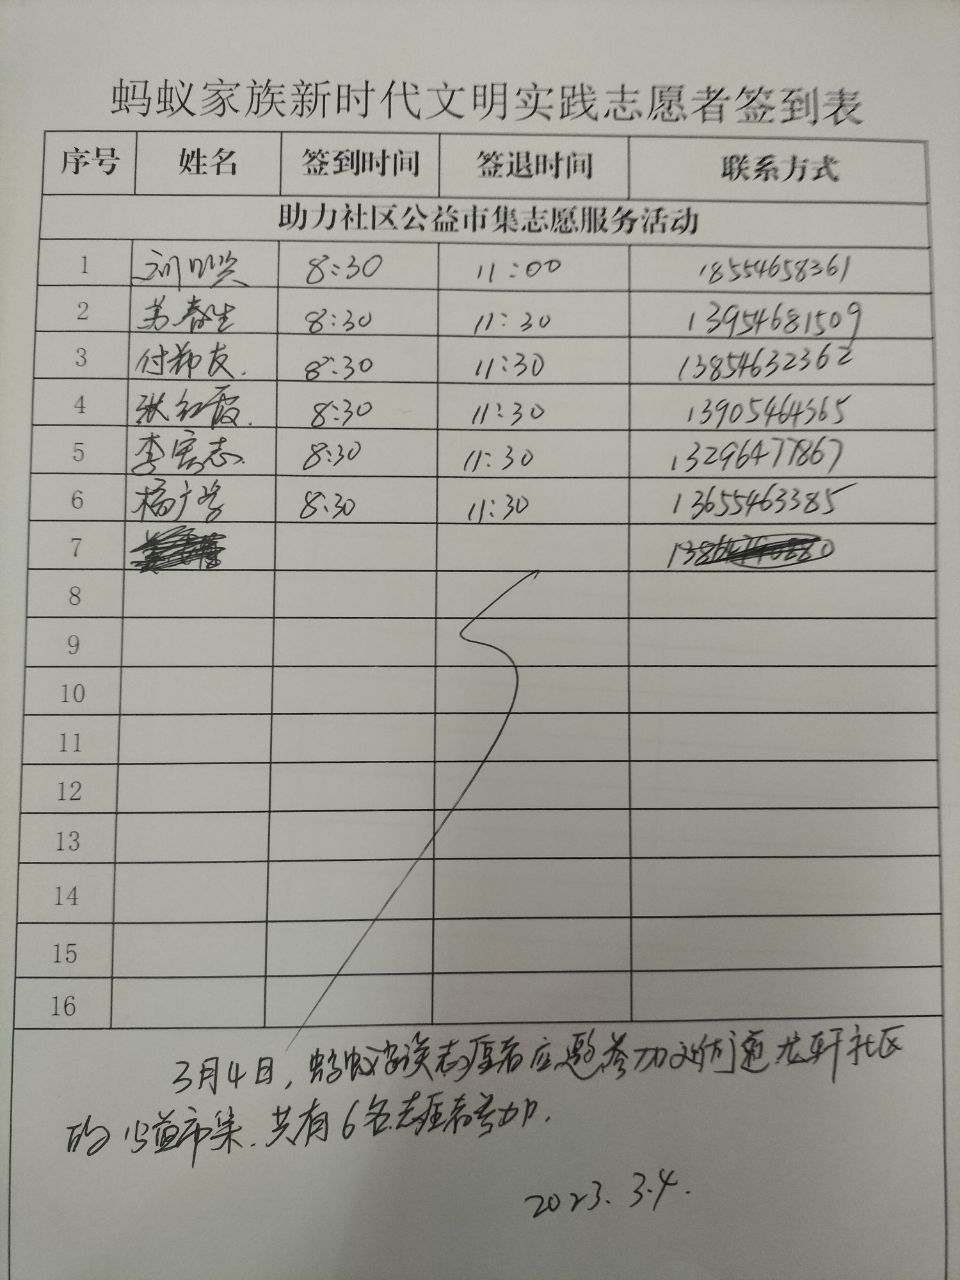 蚂蚁家族新时代文明实践志愿者签到表
序号 姓名 签到时间 签退时间 联系方式
助力社区公益市集志愿服务活动
1 刘 8:30 11:00 18554658361
2 春生 8:30 11:30 13954681509
3 付 友. 8:30 11:30 13854632362
4 张红霞. 8:30 11:30 13905464365
5 李宪志. 8:30 11:30 13296477867
6 杨广学 8:30 11:30 13655463385
7
8
9
10
11
12
13
14
15
16
3月4日,蚂蚁家族志愿者应邀参加 龙轩社区
的公益市集.共有6名志愿者参加.
2023.3.4.